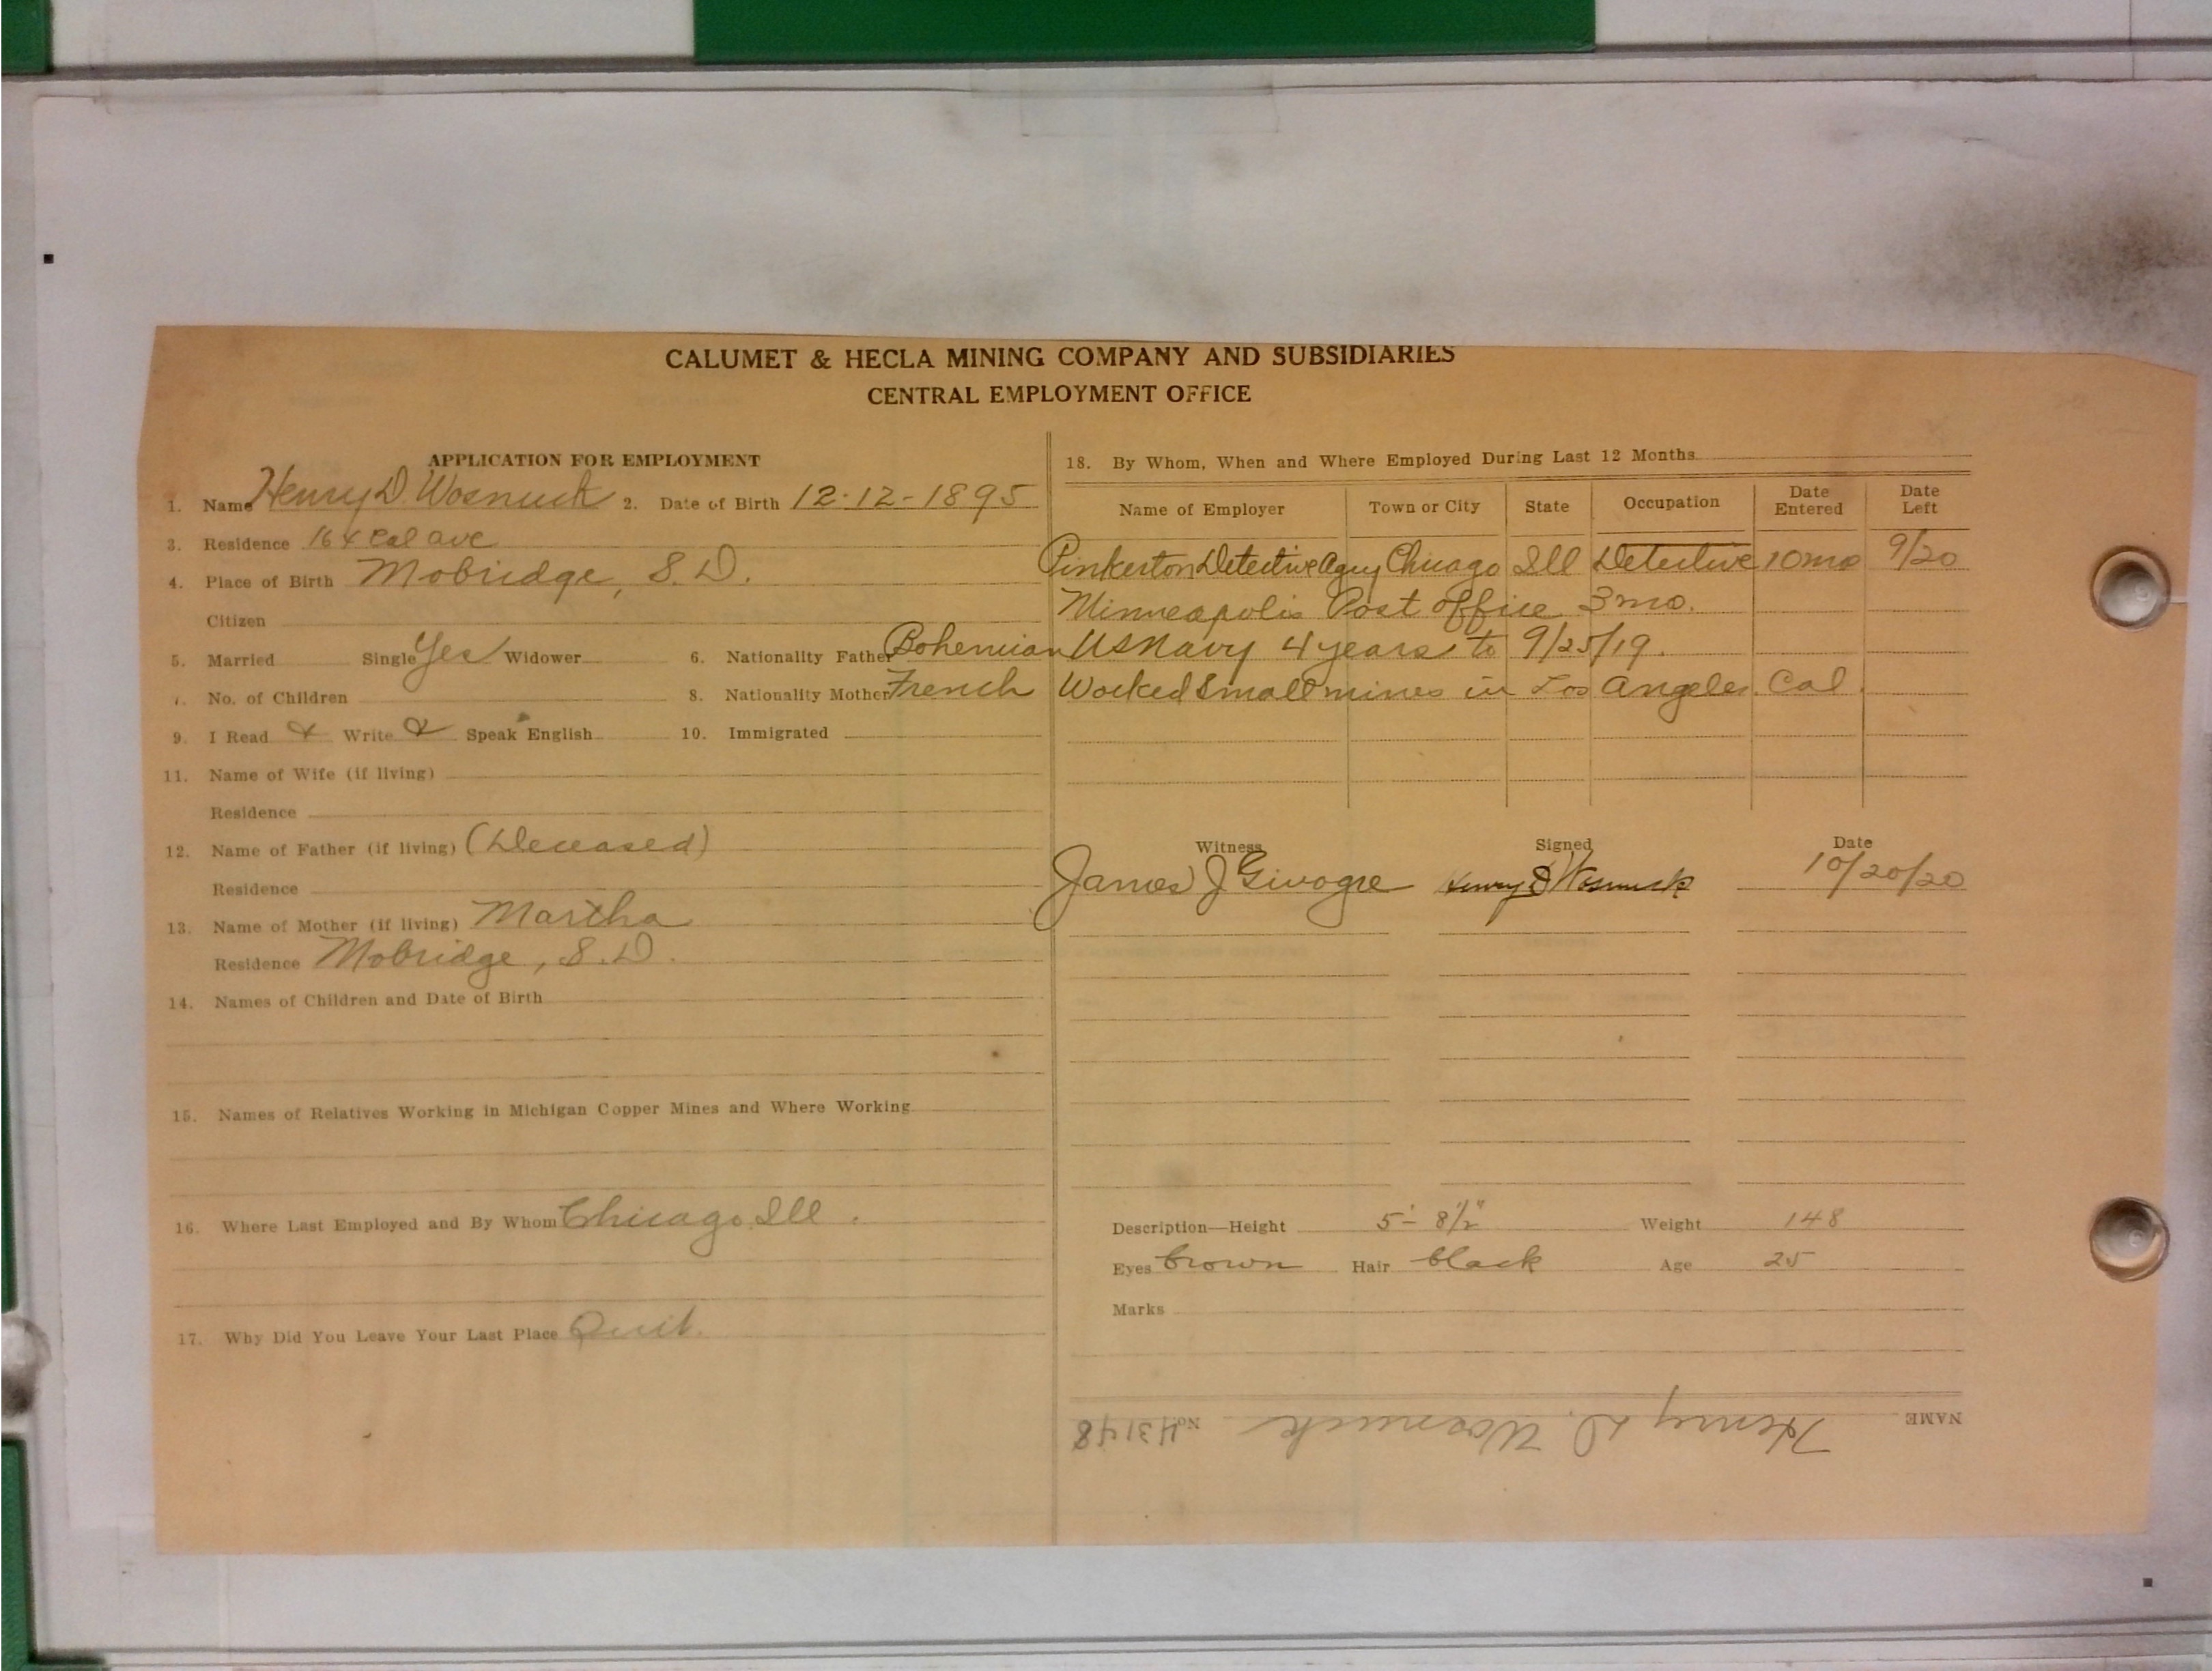 CALUMET & HECLA MINING COMPANY AND SUBSIDIARIES
CENTRAL EMPLOYMENT OFFICE
APPLICATION FOR EMPLOYMENT
1. Name Henry D. Wosnuck 2. Date of Birth 12-12-1895
3. Residence 164 Cal ave
4. Place of Birth Mobridge, S.D.
Citizen
5. Married Single Yes Widower 6. Nationality Father Bohemian
7. No. of Children 8. Nationality Mother French
9. I Read Write Speak English 10. Immigrated
11. Name of Wife (if living)
Residence
12. Name of Father (if living) (Deceased)
Residence
13. Name of Mother (if living) Martha
Residence Mobridge, S.D.
14. Names of Children and Date of Birth
15. Names of Relatives Working in Michigan Copper Mines and Where Working
16. Where Last Employed and By Whom Chicago, Ill.
17. Why Did You Leave Your Last Place Quit.
18. By Whom, When and Where Employed During Last 12 Months
Name of Employer Town or City State Occupation Date Entered Date Left
Pinkerton Detective Agcy Chicago Ill Detective 10 mo 9/20
Minneapolis Post office 3 mo.
US Navy 4 years to 9/25/19.
Worked Small mines in Los Angeles. Cal.
Witness Signed Date
James J Henry D Wosnuck 10/20/20
Description—Height 5'-8½" Weight 148
Eyes brown Hair black Age 25
Marks
NAME Henry D. Wosnuck No. 43148